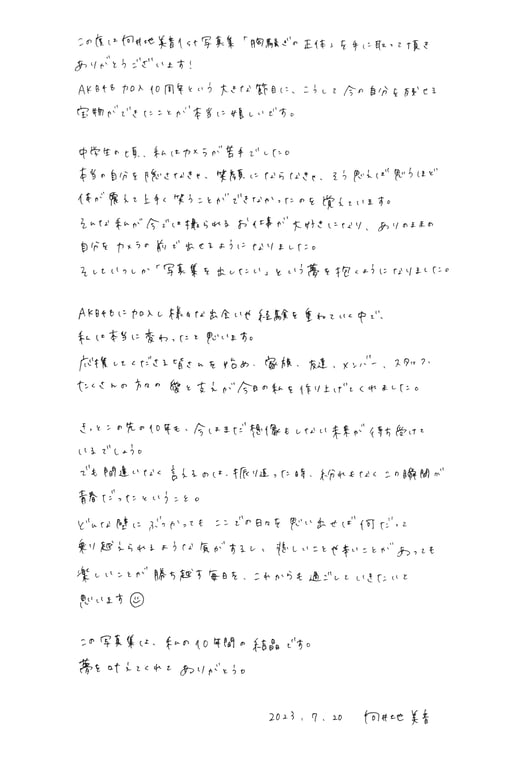 この度は向井地美音1st写真集「胸騒ぎの正体」を手に取って頂き
ありがとうございます！
AKB48 加入10周年という大きな節目に、こうして今の自分を残せる
宝物ができたことが本当に嬉しいです。
中学生の頃、私はカメラが苦手でした。
本当の自分を隠さなきゃ、笑顔にならなきゃ、そう思えば思うほど
体が震えて上手く笑うことができなかったのを覚えています。
そんな私が今では撮られるお仕事が大好きになり、ありのままの
自分をカメラの前で出せるようになりました。
そしていつしか「写真集を出したい」という夢を抱くようになりました。
AKB48に加入し様々な出会いや経験を重ねていく中で、
私は本当に変わったと思います。
応援してくださる皆さんを始め、家族、友達、メンバー、スタッフ、
たくさんの方々の愛と支えが今日の私を作り上げてくれました。
きっとこの先の10年も、今はまだ想像もしない未来が待ち受けて
いるでしょう。
でも間違いなく言えるのは、振り返った時、紛れもなくこの瞬間が
青春だったということ。
どんな壁にぶつかってもここでの日々を思い出せば何だって
乗り越えられるような気がするし、悲しいことや辛いことがあっても
楽しいことが勝ち越す毎日を、これからも過ごしていきたいと
思います☺
この写真集は、私の10年間の結晶です。
夢を叶えてくれてありがとう。
2023.7.20 向井地美音